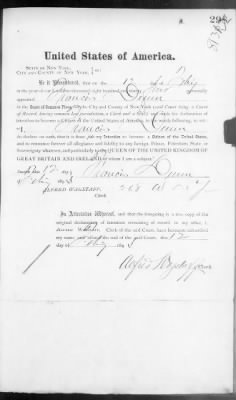 298
United States of America.
STATE OF NEW YORK,
CITY AND COUNTY OF NEW YORK,
Be it Remembered, that on the 12 day of
in the year of our Lord one thousand eight hundred and ninety personally
appeared Francis Quinn
in the Court of Common Pleas for the City and County of New York (said Court being a Court
of Record, having common law jurisdiction, a Clerk and a Seal) and made his declaration of
intention to become a Citizen of the United States of America, in the words following, to wit:
"I, Francis Quinn
do declare on oath, that it is bona fide my intention to become a Citizen of the United States,
and to renounce forever all allegiance and fidelity to any foreign Prince, Potentate, State or
Sovereignty whatever, and particularly to the QUEEN OF THE UNITED KINGDOM OF
GREAT BRITAIN AND IRELAND, of whom I am a subject."
Sworn this 12 Francis Quinn
day of 189
ALFRED WAGSTAFF,
Clerk
In Attestation Whereof, and that the foregoing is a true copy of the
original declaration of intention remaining of record in my office, I,
ALFRED WAGSTAFF, Clerk of the said Court, have hereunto subscribed
my name and affixed the seal of the said Court, this 12
day of 189
Alfred Wagstaff Clerk